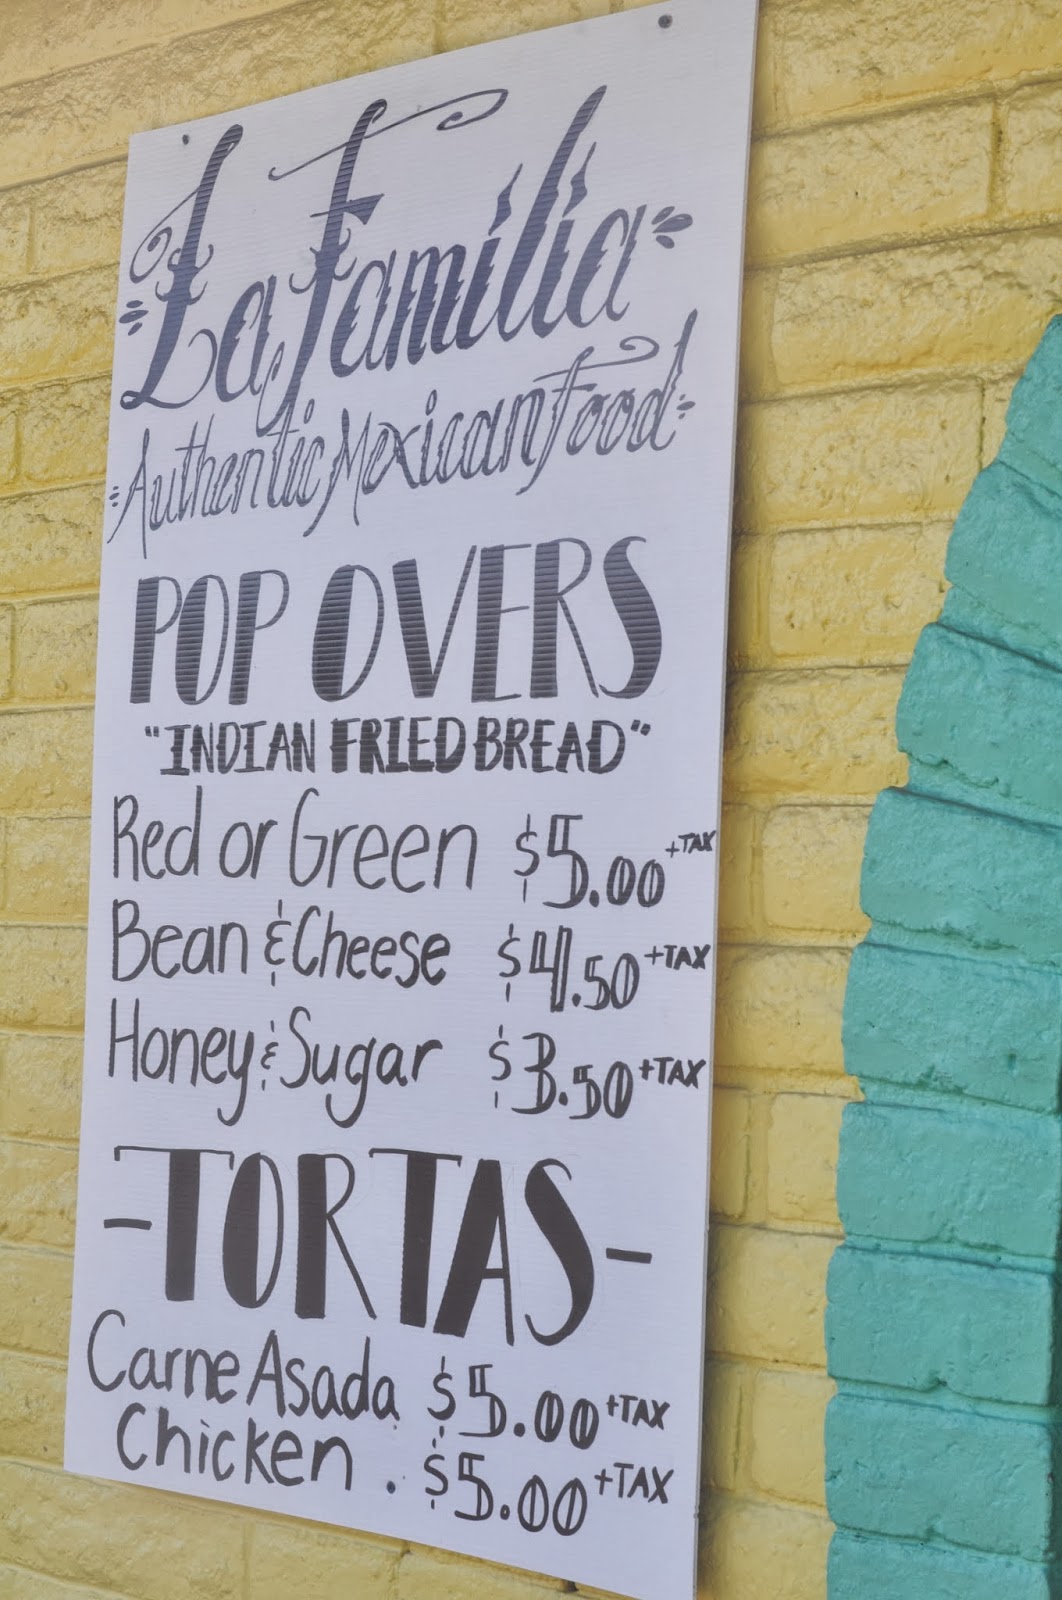 La Familia
Authentic Mexican Food
POP OVERS
"INDIAN FRIED BREAD"
Red or Green $5.00 +TAX
Bean & Cheese $4.50 +TAX
Honey & Sugar $3.50 +TAX
-TORTAS-
Carne Asada $5.00 +TAX
Chicken . $5.00 +TAX